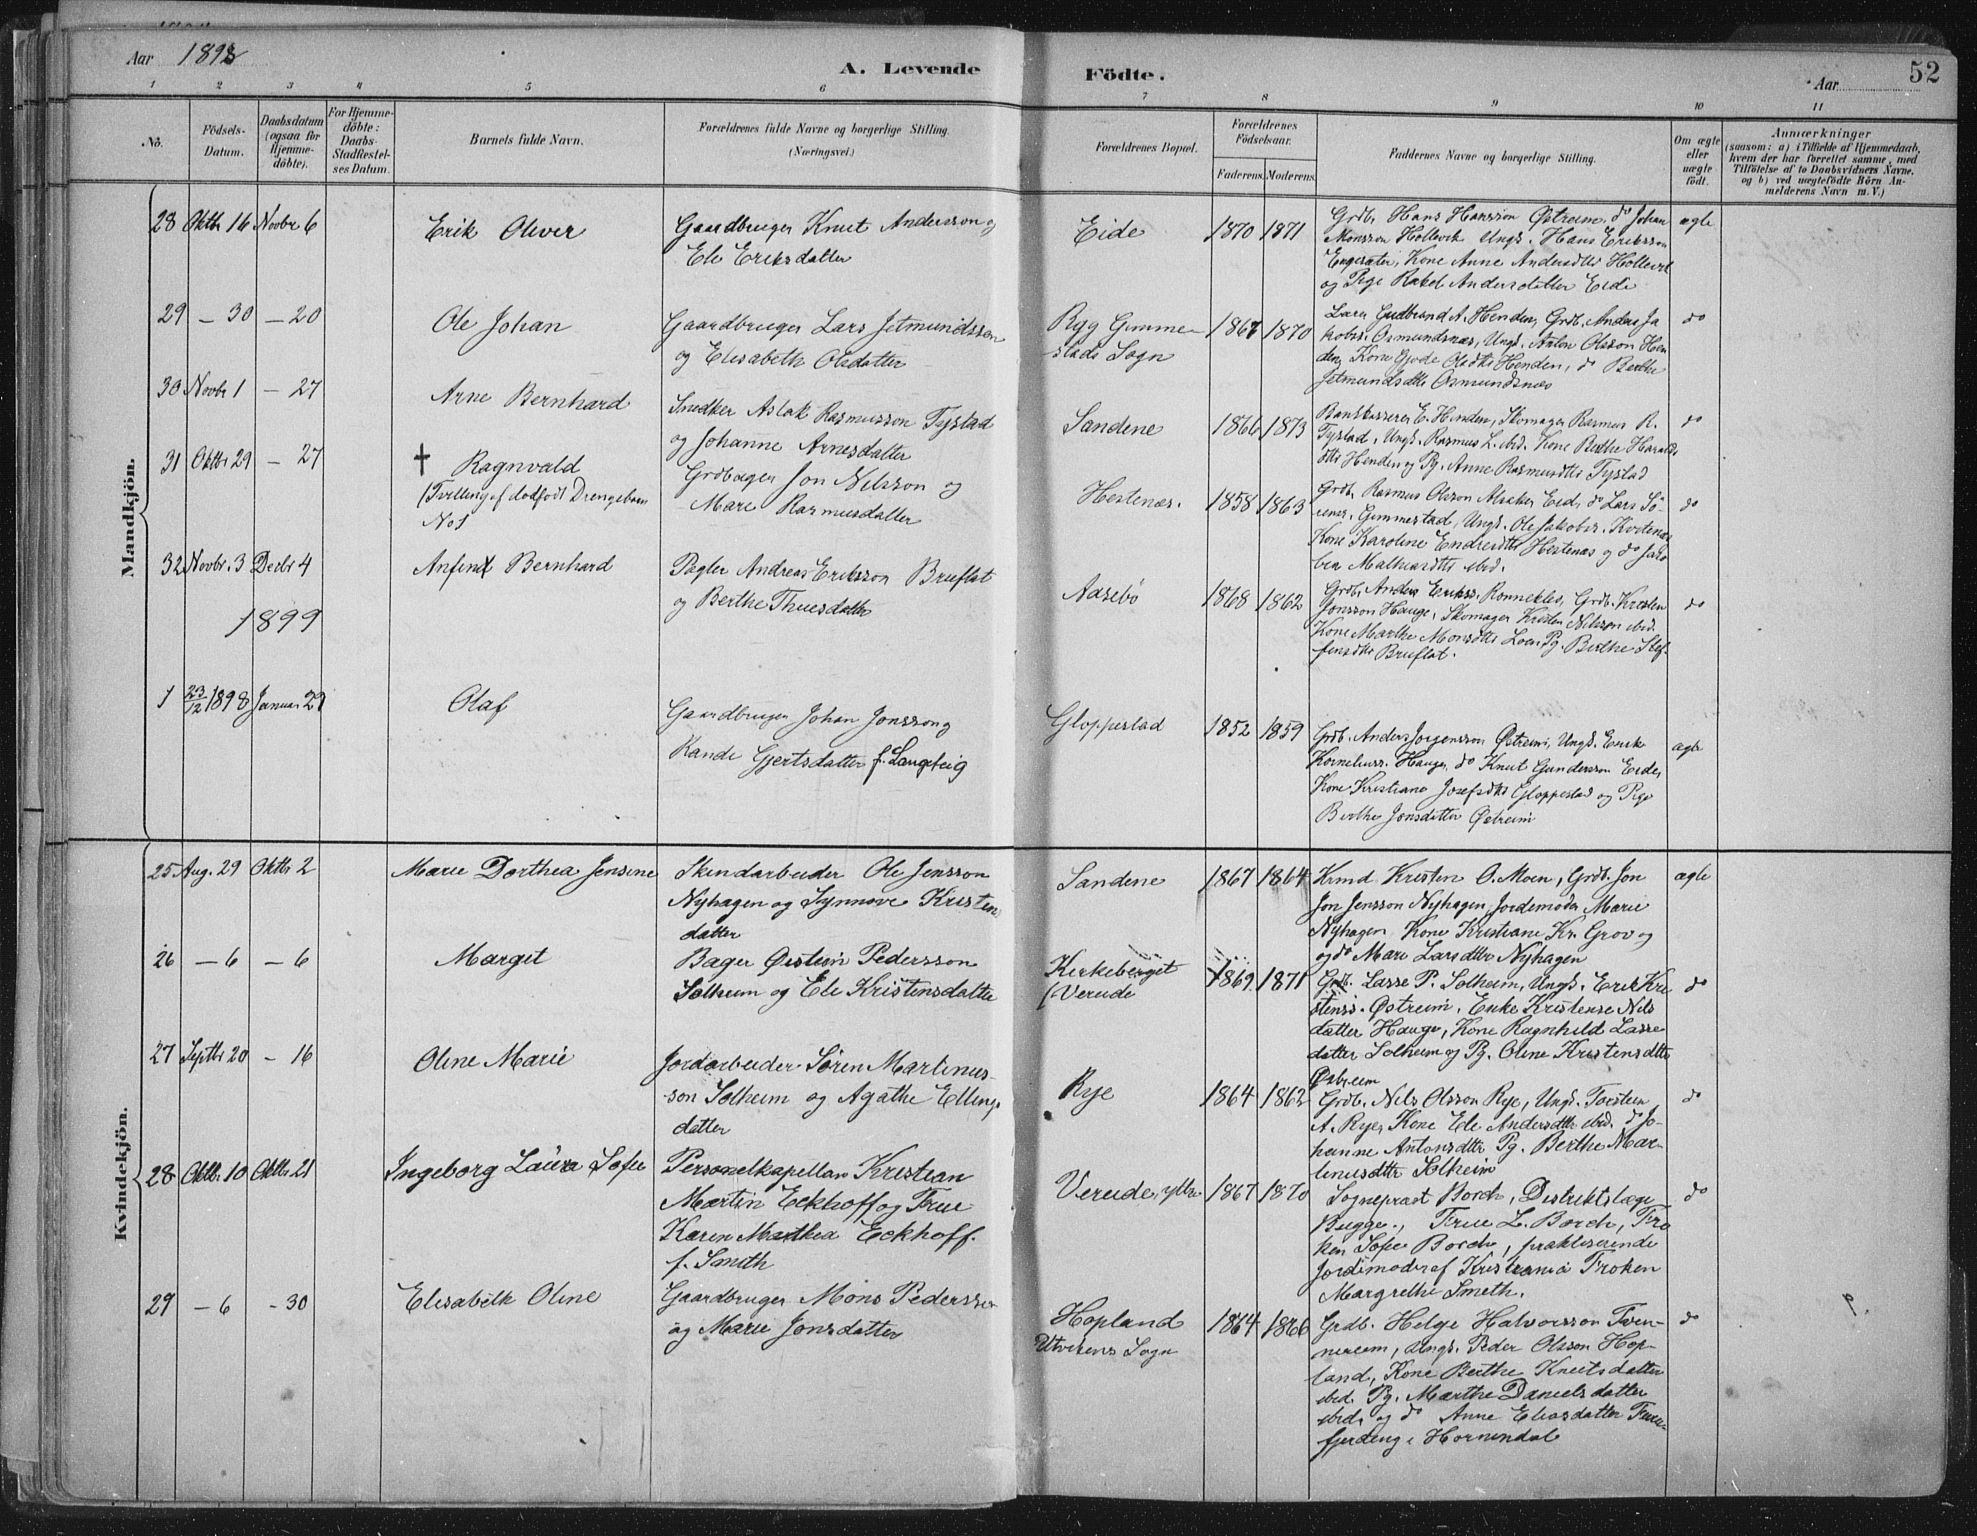 Aar 1898
A. Levende Födte.
Aar
52
1 2 3 4 5 6 7 8 9 10 11
No.
Födsels-Datum.
Daabsdatum (ogsaa for Hjemme-döbte).
For Hjemme-döbte: Daabs-Stadfæstel-ses Datum.
Barnets fulde Navn.
Forældrenes fulde Navne og borgerlige Stilling. (Næringsvei.)
Forældrenes Bopæl.
Forældrenes Födselsaar.
Faderens. Moderens.
Faddernes Navne og borgerlige Stilling.
Om ægte eller uægte födt.
Anmærkninger
(saasom: a) i Tilfælde af Hjemmedaab,
hvem der har forrettet samme, med
Tilföielse af to Daabsvidners Navne,
og b) ved uægtefödte Börn An-
melderens Navn m. V.)
Mandkjön.
28 Oktbr 16 Novbr 6 Erik Oliver
Gaardbruger Knut Andersson og
Eli Eriksdatter
Eide 1870 1871
Grdb. Hans Hansson Østreim, do Johan
Monsson Hollevik Ungk. Hans Eriksson
Engesæter, Kone Anne Andersdtr Hollevik
og Pige Rakel Andersdatter Eide
ægte
29 — 30 — 20 Ole Johan
Gaardbruger Lars Jetmundsson
og Elisabeth Olsdatter
Ryg Gimme-
stads Sogn
1867 1870
Lærer Gudbrand A. Henden, Grdb. Anders Ja
kobs. Osmundsnæs, Ungk. Anton Olsson Hen
den, Kone Gjøde Olsdtr Henden, do Berthe
Jetmundsdtr Osmundsnæs
do
30 Novbr 1 — 27 Arne Bernhard
Snedker Aslak Rasmusson Tystad
og Johanne Arnesdatter
Sandene 1866 1873
Bankkasserer E. Henden, Skomager Rasmus R.
Tystad, Ungk. Rasmus L. ibid. Kone Berthe Harald
dtr Henden og Pg. Anne Rasmusdtr Tystad
do
31 Oktbr 29 — 27 † Ragnvald
(Tvilling af dødfødt Drengebarn
No 1
Grdbruger Jon Nilsson og
Mari Rasmusdatter
Hestenæs. 1858 1863
Grdb. Rasmus Olsson Alsaker Eid, do Lars Sö-
rens. Gimmestad, Ungk. Ole Jakobs.
Kone Karoline Endresdtr Hestenæs og do Jako
bea Mathiasdtr ibid.
do
32 Novbr. 3 Decbr 4 Anfind Bernhard
Pagter Andreas Eriksson Bruflat
og Berthe Thuesdatter
Aasebö 1868 1862
Grdb. Anders Erikss. Rønnekleiv, Grdb. Kristen
Jonsson Hauge, Skomager Kristen Nilsson ibid.
Kone Marthe Monsdtr Loen, Pg. Berthe Stef-
fensdtr Bruflat.
do
1899
1 23/12 1898 Januar 29 Olaf
Gaardbruger Johan Jonsson og
Rande Gjertsdatter f. Langeteig
Gloppestad 1852 1859
Grdb. Anders Jorgensson Østreim, Ungk. Enok
Korneliuss. Hauge, do Knut Gundersson Eide,
Kone Kristiane Josefsdtr Gloppestad og Pige
Berthe Jonsdatter Østreim
ægte
Kvindekjön.
25 Aug. 29 Oktbr 2 Marie Dorthea Jensine
Skindarbeider Ole Jensson
Nyhagen og Synnøve Kristens
datter
Sandene 1867 1864
Krmd. Kristen O. Moen, Grdb. Jon
Jon Jensson Nyhagen, Jordemoder Marie
Nyhagen, Kone Kristiane Kr. Grov og
og do Mari Larsdtr Nyhagen
ægte
26 — 6 — 6 Margit
Bager Øistein Pedersson
Solheim og Eli Kristensdatter
Kirkeberget
(Vereide
1869 1871
Grdb. Lasse P. Solheim, Ungk. Erik Kri
stenss. Østreim, Enke Kristense Nils
datter Hauge, Kone Ragnhild Lasse
datter Solheim og Pg. Oline Kristensdtr
Østreim
do
27 Septbr 20 — 16 Oline Marie
Jordarbeider Sören Martinus-
son Solheim og Agathe Ellings
datter
Rye 1864 1862
Grdb. Nils Olsson Rye, Ungk. Torstein
A. Rye, Kone Eli Andersdtr ibid. do Jo-
hanne Antonsdtr Pg. Berthe Mar-
tinusdtr Solheim
do
28 Oktbr. 10 Oktbr 21 Ingeborg Laura Sofie
Personelkapellan Kristian
Martin Eckhoff og Frue
Karen Marthea Eckhoff
f. Smith
Vereide, ytre 1867 1870
Sogneprast Borch, Distriktslæge
Bugge., Frue L. Borch, Frø
ken Sofie Borch, praktiserende
Jordemoder af Kristiania Frøken
Margrethe Smith.
do
29 — 6 — 30 Elisabeth Oline
Gaardbruger Mons Pedersson
og Marie Jonsdatter
Hopland
Utvikens Sogn
1864 1866
Grdb. Helge Halvorsson Tven-
nereim, Ungk. Peder Olsson Hop-
land, Kone Berthe Knutsdatter
ibid. Pg. Marthe Danielsdatter
ibid. og do Anne Eliasdatter
fjerding i Hornindal
do